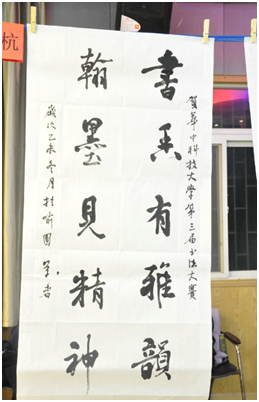 賀華中科技大學第三届书法大賽
書香有雅韻
翰墨見精神
歲次乙未冬月於喻園
杭